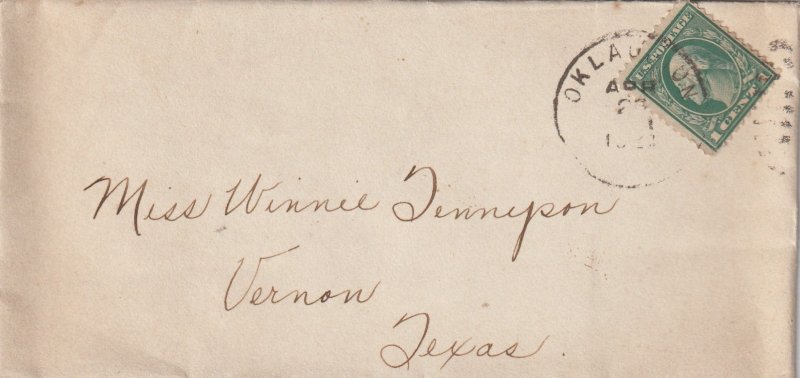 OKLAUNION
APR
U.S. POSTAGE
1 CENT 1
Miss Winnie Tennyson
Vernon
Texas.